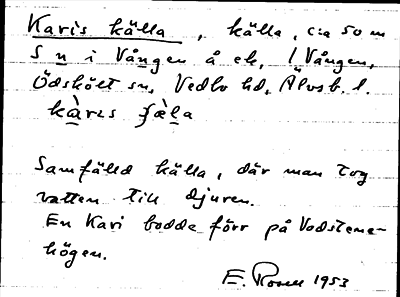 Karis källa, källa, c:a 50 m
S n i Vången å ek, l Vången,
Ödskölt sn, Vedbo hd, Älvsb. l.
kàrɩs ʃæ̀la
Samfälld källa, där man tog
vatten till djuren.
En Kari bodde förr på Vadstene-
högen.
E. Rosell 1953